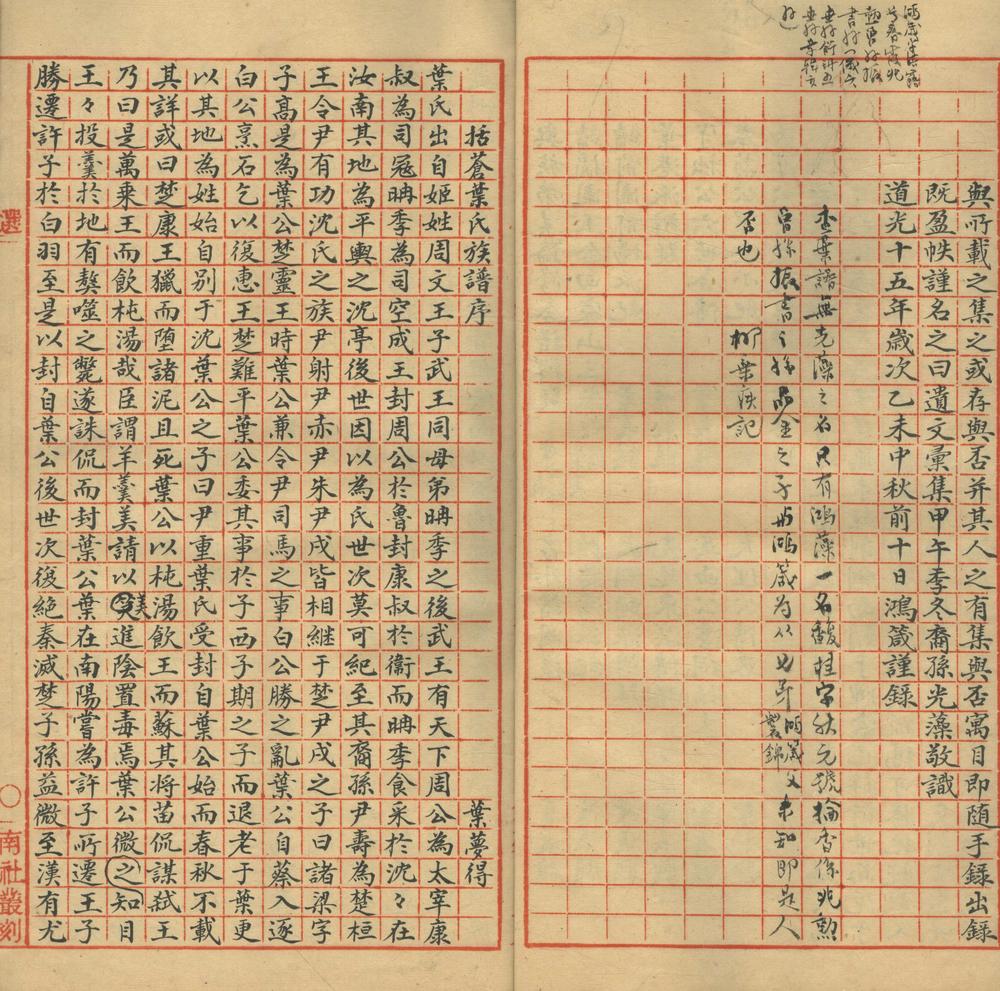 與所載之集之或存與否并其人之有集與否寓目即随手錄出錄
既盈帙謹名之曰遺文彙集甲午季冬裔孫光藻敬識
道光十五年歲次乙未中秋前十日鴻箴謹錄
查葉譜無光藻之名只有鴻藻一名馥桂字秋元號檢香係兆勳
曾孫振書之孫金之子與鴻箴為从兄弟鴻箴父未知即是人
否也 柳棄疾記
括蒼葉氏族譜序 葉夢得
葉氏出自姬姓周文王子武王同母弟聃季之後武王有天下周公為太宰康
叔為司寇聃季為司空成王封周公於魯封康叔於衞而聃季食采於沈々在
汝南其地為平輿之沈亭後世因以為氏世次莫可紀至其裔孫尹壽為楚桓
王令尹有功沈氏之族尹射尹赤尹朱尹戌皆相継于楚尹戌之子曰諸梁字
子高是為葉公楚靈王時葉公兼令尹司馬之事白公勝之亂葉公自蔡入逐
白公烹石乞以復惠王楚難平葉公委其事於子西子期之子而退老于葉更
以其地為姓始自别于沈葉公之子曰尹重葉氏受封自葉公始而春秋不載
其詳或曰楚康王獵而堕諸泥且死葉公以杶湯飲王而蘇其将苗侃謀弑王
乃曰是萬乘王而飲杶湯哉臣謂羊羹美請以美進陰置毒焉葉公微之知目
王々投羹於地有獒噬之斃遂誅侃而封葉公葉在南陽嘗為許子所遷王子
勝遷許子於白羽至是以封自葉公後世次復絶秦滅楚子孫益微至漢有尤
選 〇 南社叢刻